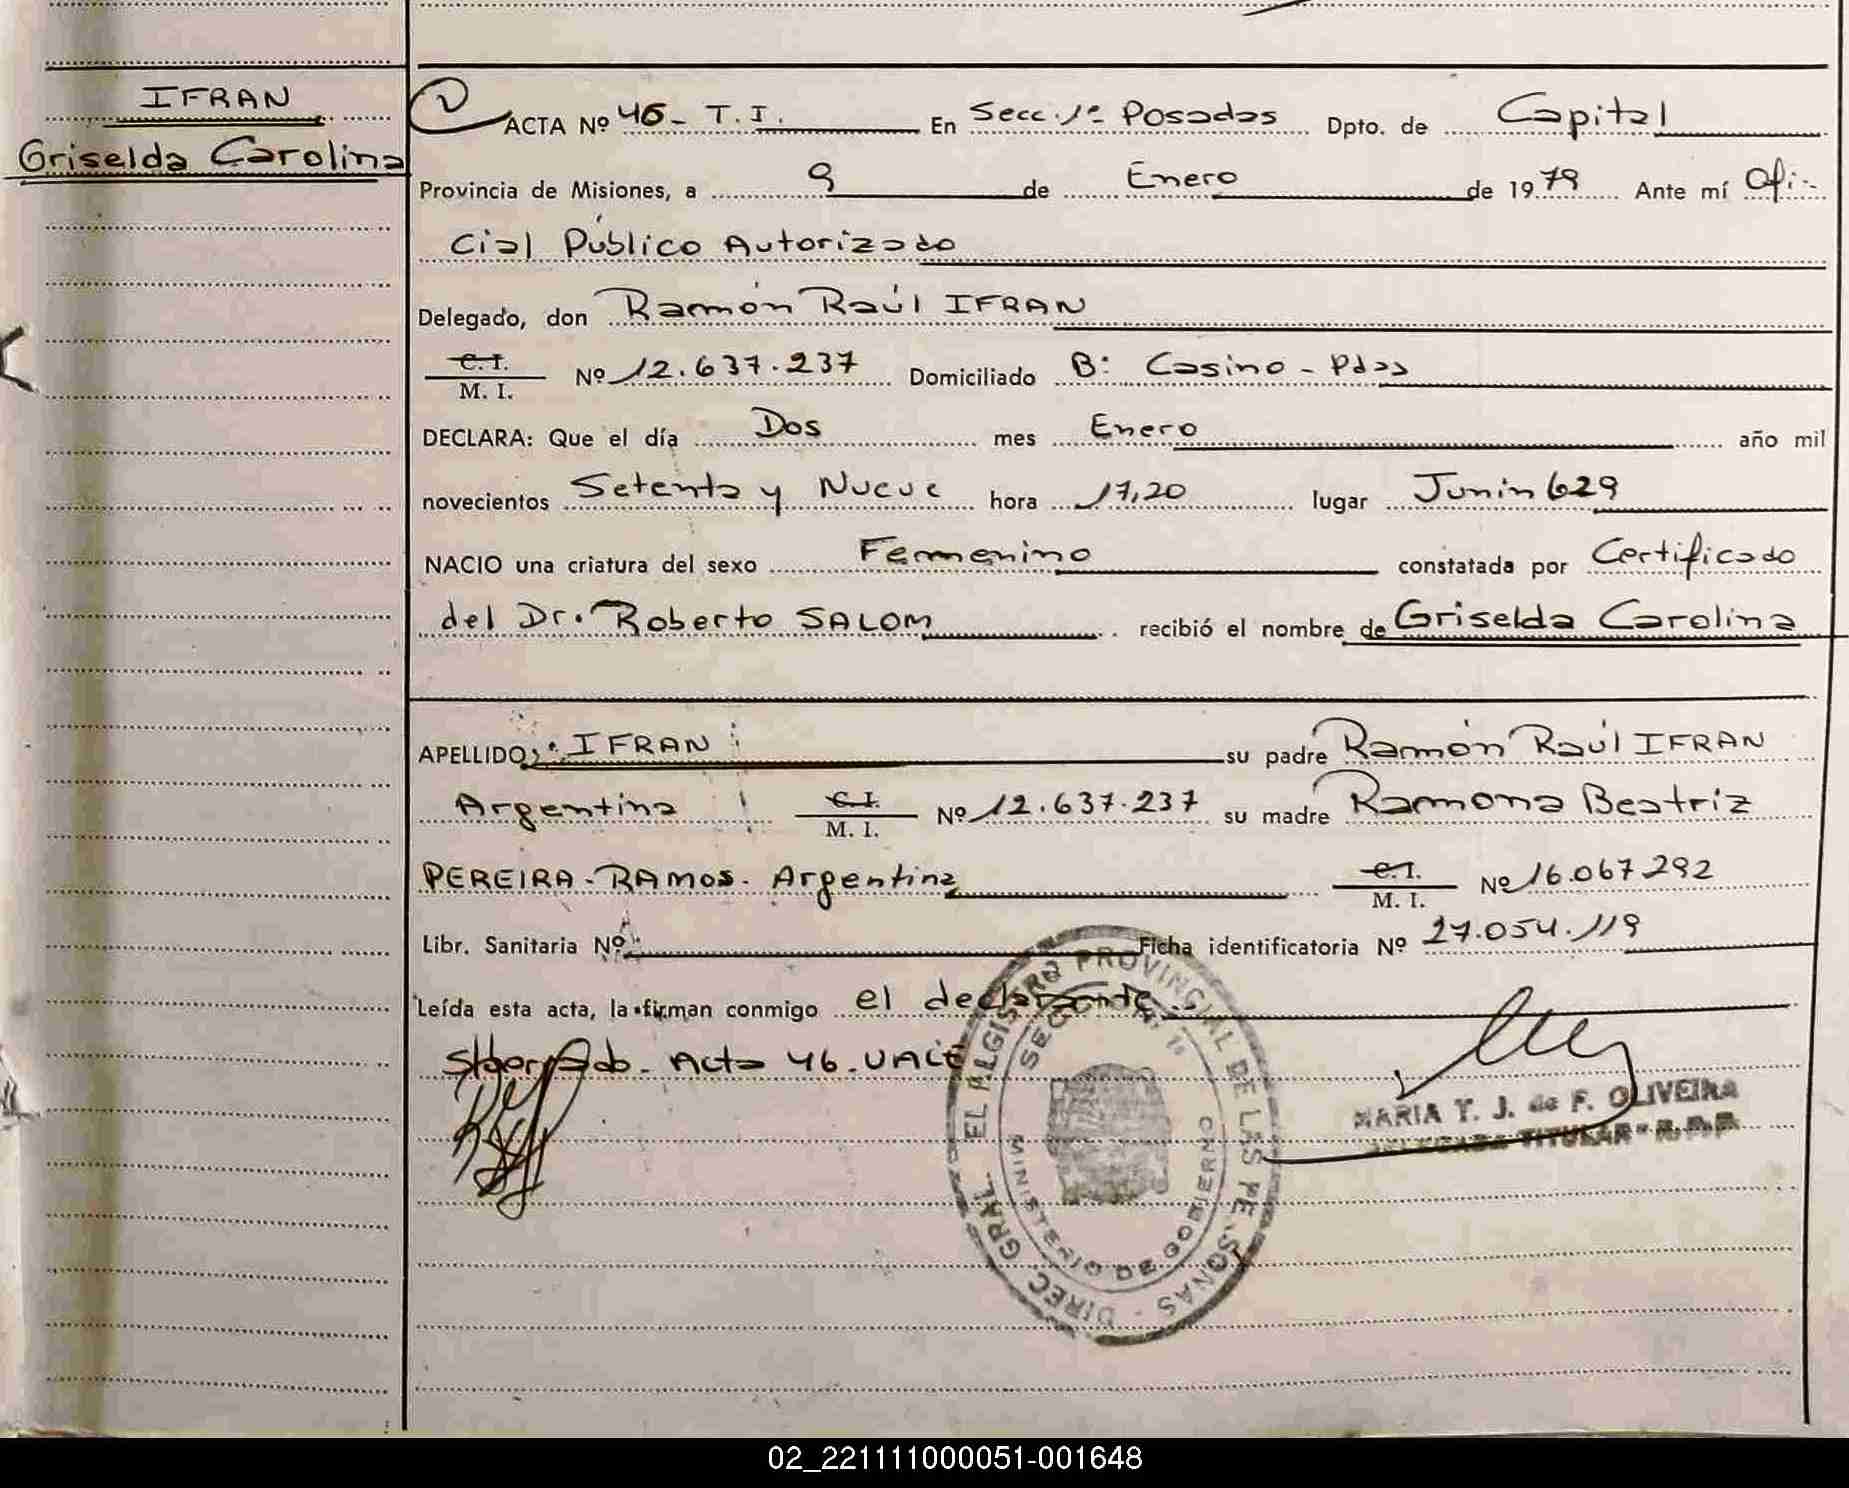 IFRAN
Griselda Carolina
ACTA Nº 46- T.I. En Secc. 1ª Posadas Dpto. de Capital
Provincia de Misiones, a 9 de Enero de 1979 Ante mí Ofi-
cial Público Autorizado
Delegado, don Ramón Raúl IFRAN
C.I.
M. I. Nº 12.637.237 Domiciliado Bº Casino - Pdas
DECLARA: Que el día Dos mes Enero año mil
novecientos Setenta y Nueve hora 17,20 lugar Junin 629
NACIO una criatura del sexo Femenino constatada por Certificado
del Dr. Roberto SALOM recibió el nombre de Griselda Carolina
APELLIDO: IFRAN su padre Ramón Raúl IFRAN
Argentina C.I. M. I. Nº 12.637.237 su madre Ramona Beatriz
PEREIRA-RAMOS- Argentina C.I. M. I. Nº 16.067.292
Libr. Sanitaria Nº Ficha identificatoria Nº 27.054.119
Leída esta acta, la firman conmigo el declarante.
Acta 46. VALE
DIREC GRAL. EL REGISTRO PROVINCIAL DE LAS PERSONAS
MINISTERIO DE GOBIERNO
MARIA Y. J. de F. OLIVEIRA
DELEGADA TITULAR - R.P.P.
02_221111000051-001648